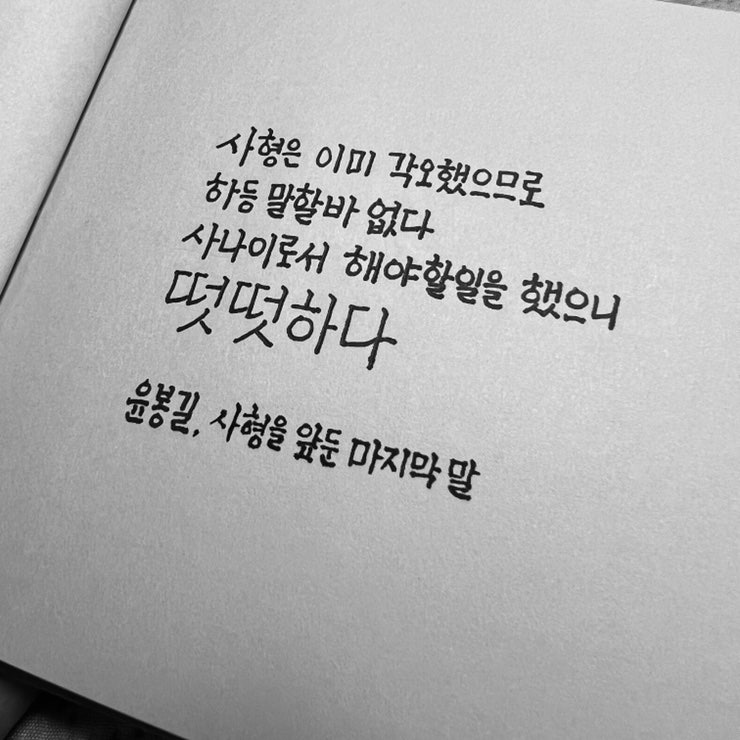 사형은 이미 각오했으므로
하등 말할바 없다
사나이로서 해야할일을 했으니
떳떳하다
윤봉길, 사형을 앞둔 마지막 말